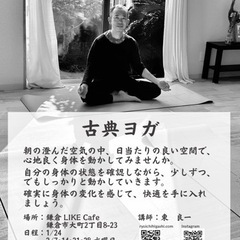 古典ヨガ
朝の澄んだ空気の中、日当たりの良い空間で、
心地良く身体を動かしてみませんか。
自分の身体の状態を確認しながら、少しずつ、
でもしっかりと動かしていきます。
確実に身体の変化を感じて、快適を手に入れ
ましょう。
場所：鎌倉 LIKE Cafe
鎌倉市大町2丁目8-23
講師：東　良一
日程：1/24
Instagram